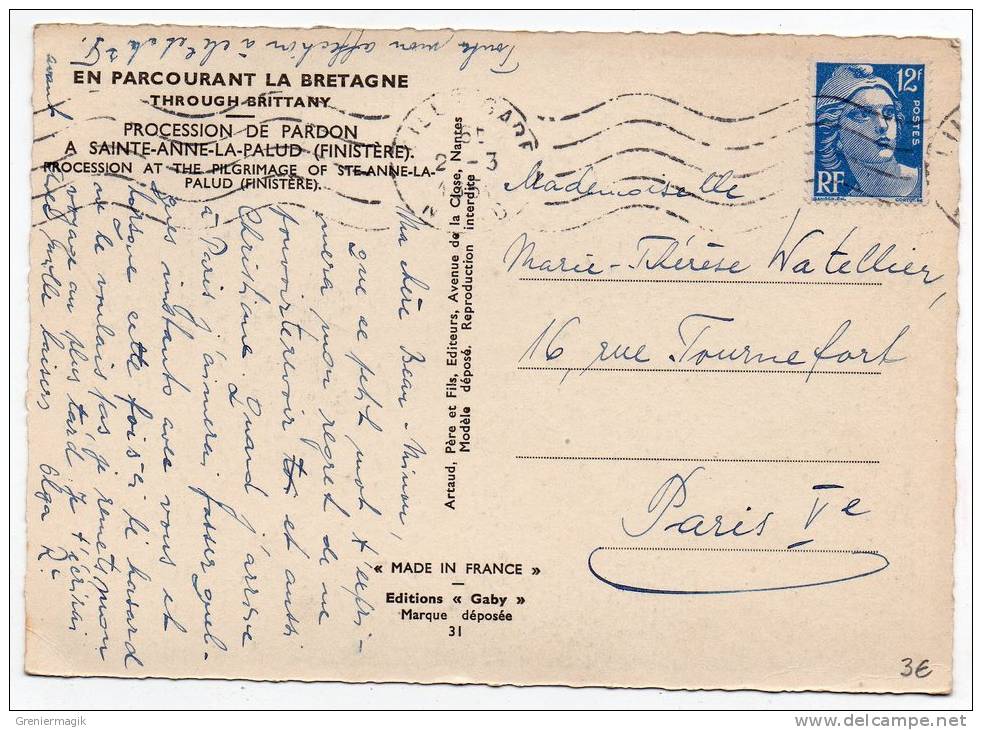 EN PARCOURANT LA BRETAGNE
THROUGH BRITTANY
PROCESSION DE PARDON
A SAINTE-ANNE-LA-PALUD (FINISTÈRE).
PROCESSION AT THE PILGRIMAGE OF STE-ANNE-LA-
PALUD (FINISTÈRE).
Ma chère Beau-Minou,
que ce petit mot t'expri-
mera mon regret de ne
pouvoir te revoir toi et aussi
Christiane. Quand j'arrive
à Paris j'aimerai passer quel-
ques instants avec vous et
lorsque cette fois-ci le hasard
ne le voulais pas je remets mon
voyage au plus tard. Je t'écrirai
avant
mille baisers Olga
Toute mon affection à
Artaud, Père et Fils, Editeurs, Avenue de la Close, Nantes
Modèle déposé. Reproduction interdite
« MADE IN FRANCE »
Editions « Gaby »
Marque déposée
31
GARE
2 - 3
12f
POSTES
RF
Mademoiselle
Marie-Thérèse Watellier,
16, rue Tournefort
Paris Ve
3€
Greniermagik
www.delcampe.net